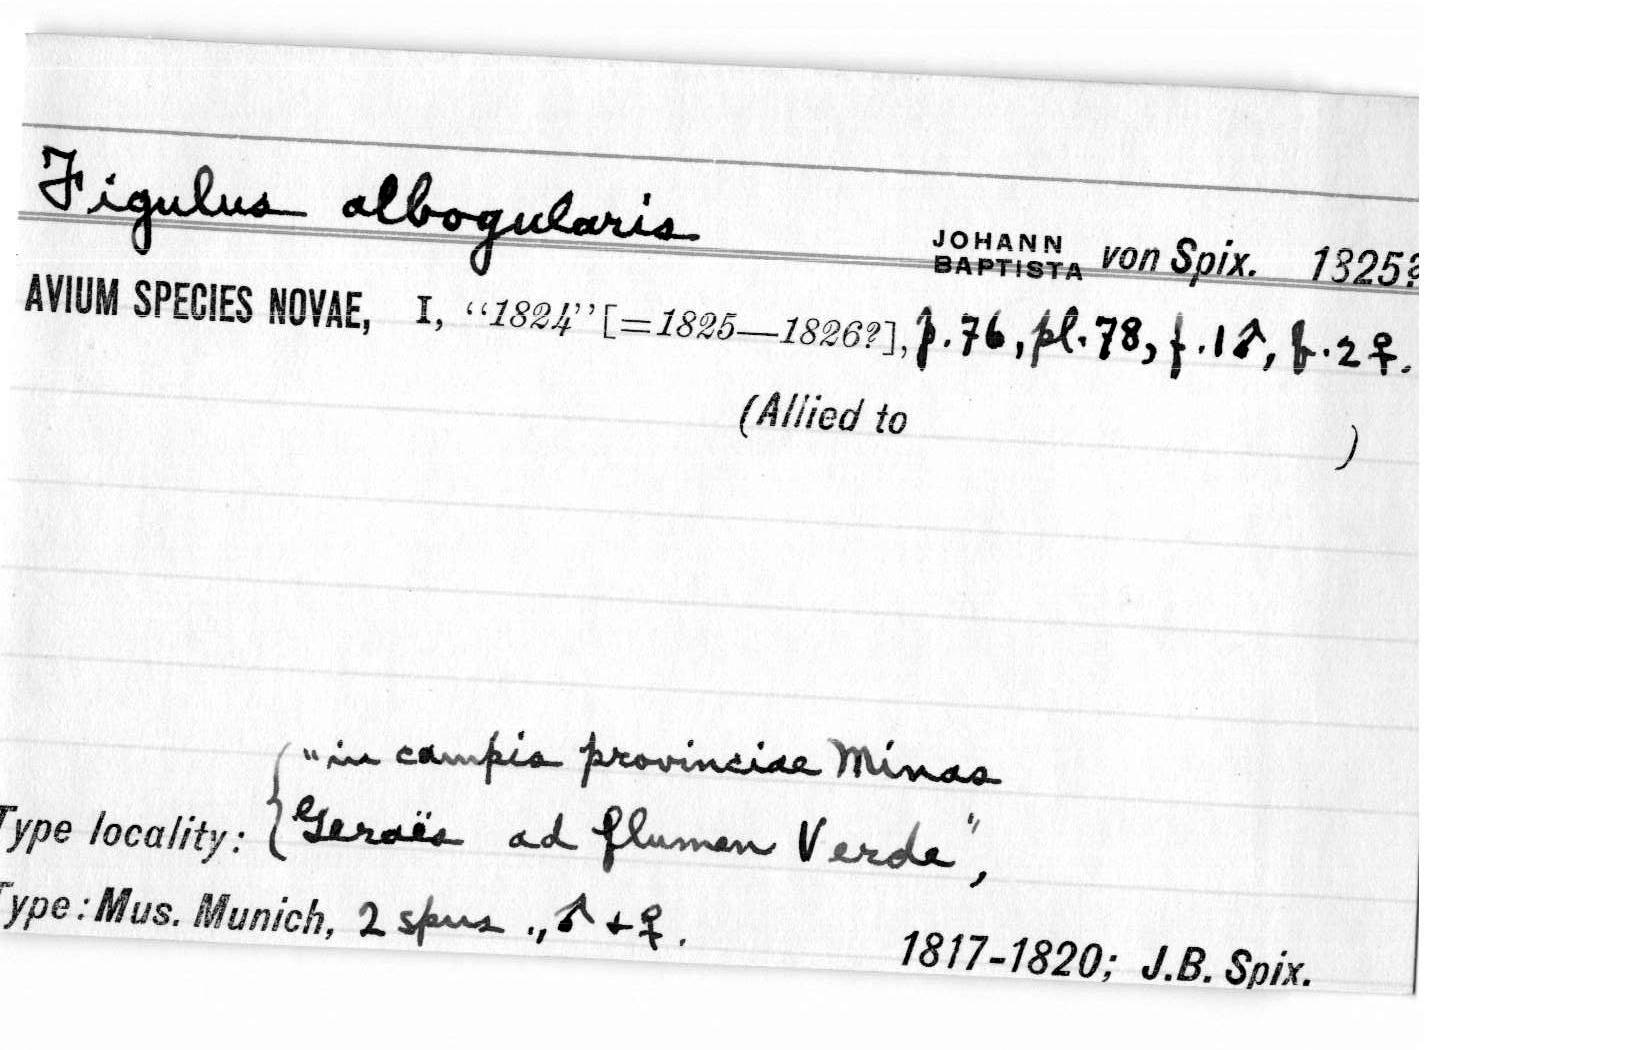 Figulus albogularis
JOHANN BAPTISTA von Spix. 1825?
AVIUM SPECIES NOVAE, I, “1824” [=1825—1826?], p.76, pl.78, f.1♂, f.2♀.
(Allied to )
"in campis provinciae Minas
Type locality: { Geraës ad flumen Verde",
Type: Mus. Munich, 2 spms ., ♂ + ♀.
1817-1820; J.B. Spix.